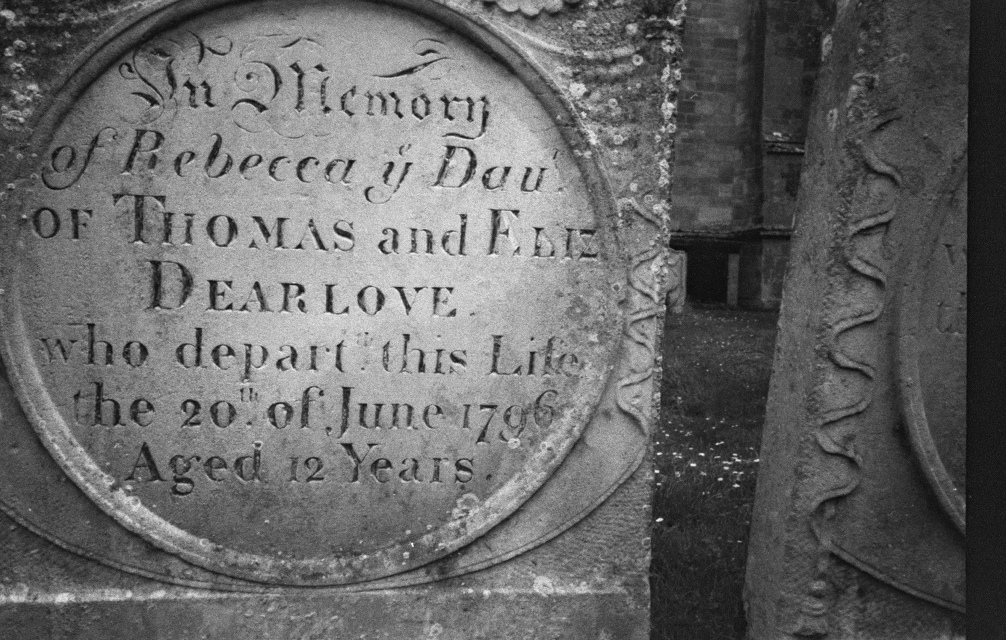 In Memory
of Rebecca yͤ Dauʳ
OF THOMAS and ELIZ
DEARLOVE.
who departᵈ this Life
the 20ᵗʰ of June 1796
Aged 12 Years.